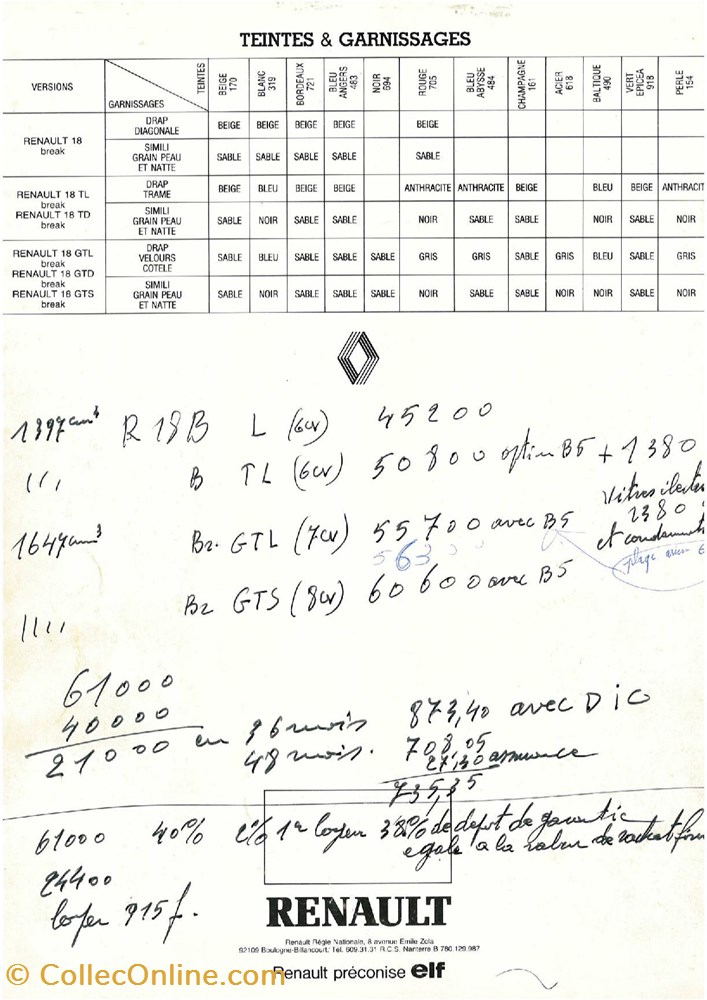 TEINTES & GARNISSAGES
VERSIONS
TEINTES
GARNISSAGES
BEIGE 170
BLANC 319
BORDEAUX 721
BLEU ANGERS 483
NOIR 694
ROUGE 705
BLEU ABYSSE 484
CHAMPAGNE 161
ACIER 618
BALTIQUE 490
VERT EPICEA 918
PERLE 154
RENAULT 18 break
DRAP DIAGONALE BEIGE BEIGE BEIGE BEIGE BEIGE
SIMILI GRAIN PEAU ET NATTE SABLE SABLE SABLE SABLE SABLE
RENAULT 18 TL break
RENAULT 18 TD break
DRAP TRAME BEIGE BLEU BEIGE BEIGE ANTHRACITE ANTHRACITE BEIGE BLEU BEIGE ANTHRACIT
SIMILI GRAIN PEAU ET NATTE SABLE NOIR SABLE SABLE NOIR SABLE SABLE NOIR SABLE NOIR
RENAULT 18 GTL break
RENAULT 18 GTD break
RENAULT 18 GTS break
DRAP VELOURS COTELE SABLE BLEU SABLE SABLE SABLE GRIS GRIS SABLE GRIS BLEU SABLE GRIS
SIMILI GRAIN PEAU ET NATTE SABLE NOIR SABLE SABLE SABLE NOIR SABLE SABLE NOIR NOIR SABLE NOIR
1397 cm³ R 18 B L (6cv) 45200
B TL (6cv) 50800 option B5 + 1380
Vitres
1380
et
1647 cm³ B2. GTL (7cv) 55700 avec B5
563
B2 GTS (8cv) 60600 avec B5
61000
40000
21000 en 36 mois 873,40 avec DIC
48 mois. 708,05
27,30 assurance
735,35
61000 40% 2% 1er loyer 38% de depot de garantie
egale a la valeur de rachat
24400
loyer 915 f.
RENAULT
Renault Régie Nationale, 8 avenue Emile Zola
92109 Boulogne-Billancourt. Tél. 609.31.31 R.C.S. Nanterre B 780.129.987
Renault préconise elf
© CollecOnline.com